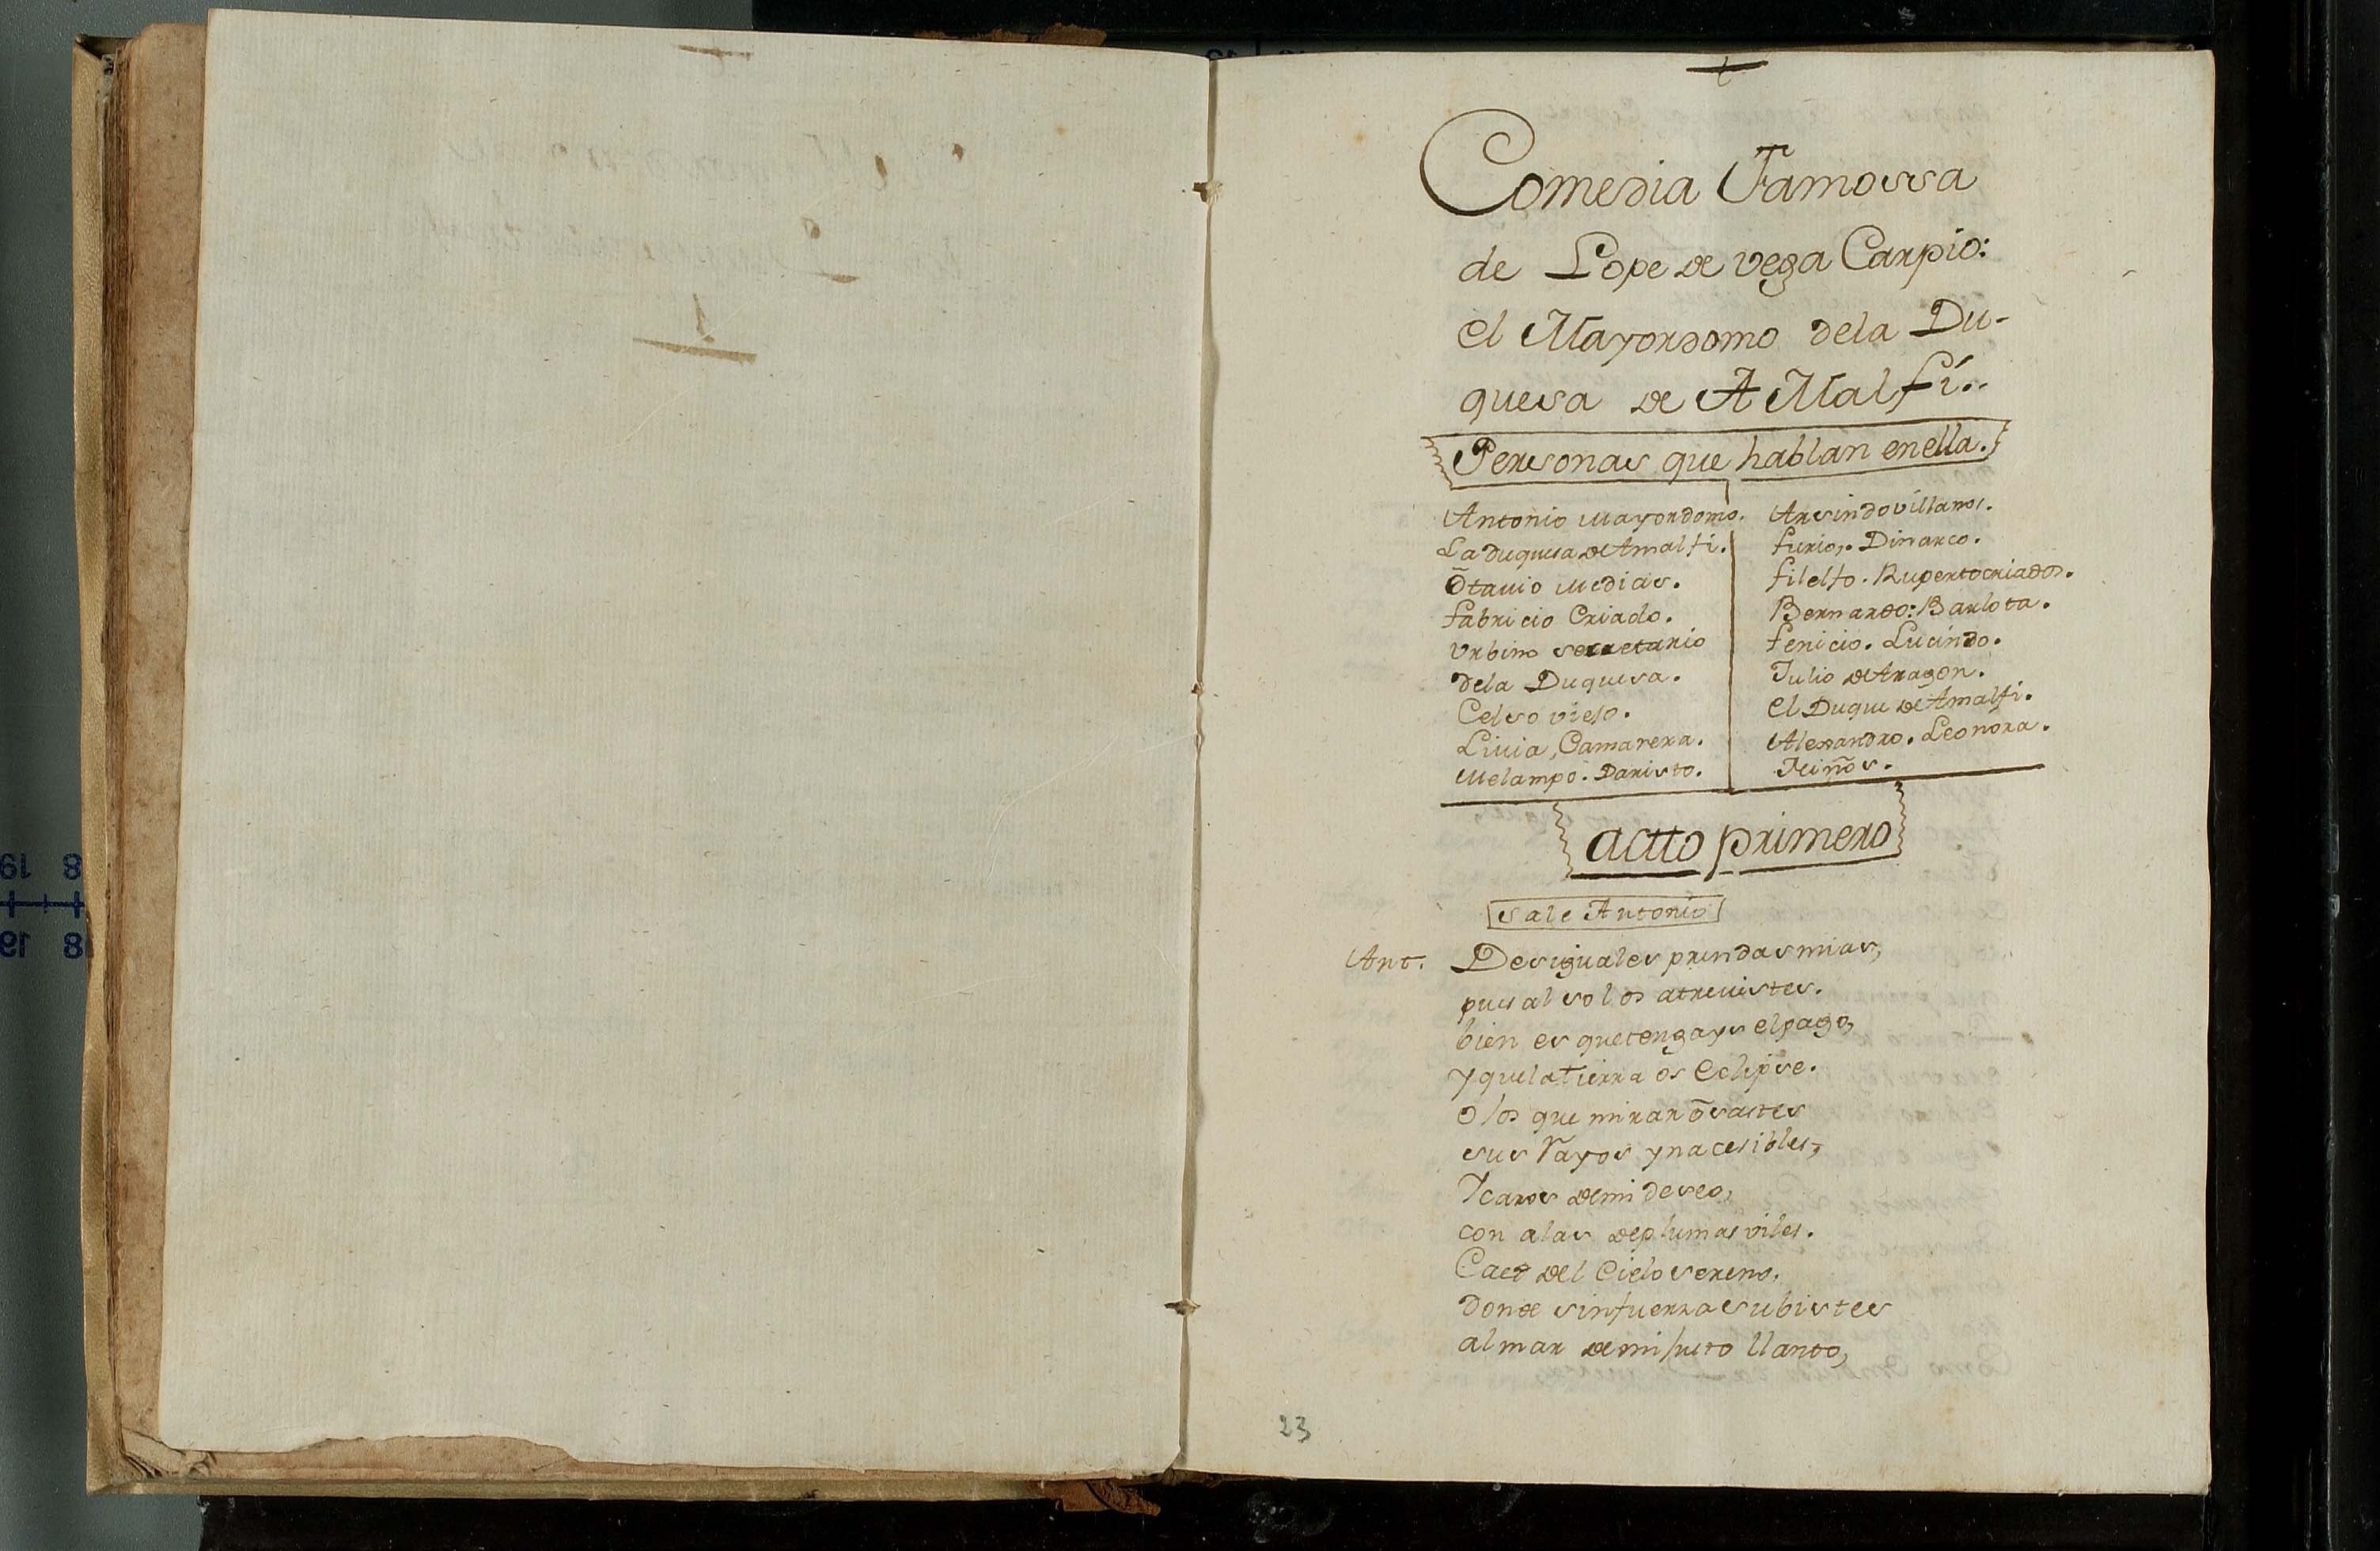 Comedia Famossa
de Lope de vega Carpio:
el Mayordomo dela Du-
quesa de AMalfi..
Personas que hablan enella.
Antonio Mayordomo.
La duquesa de Amalfi.
Otauio Medicis.
fabricio Criado.
Vrbino secretario
dela Duquesa.
Celso viejo.
Liuia, Camarera.
Melampo. Daristo.
Arsindo villanos.
furio,. Dinarco.
filelfo. Ruperto criados.
Bernardo: Barlota.
fenicio. Lucindo.
Julio de Aragon.
el Duque de Amalfi.
Alessandro. Leonora.
Niños.
actto primero
sale Antonio
Ant. Desiguales prendas mias,
pues al sol os atreuistes.
bien es que tengays el pago,
y que la tierra os eclipse.
o los que mirar osastes
sus Rayos ynacesibles,
Ycaros de mi deseo,
con alas de plumas viles.
Caed del Cielo sereno,
donde sin fuerza subistes
al mar de mi justo llanto,
23
18 19
18 19